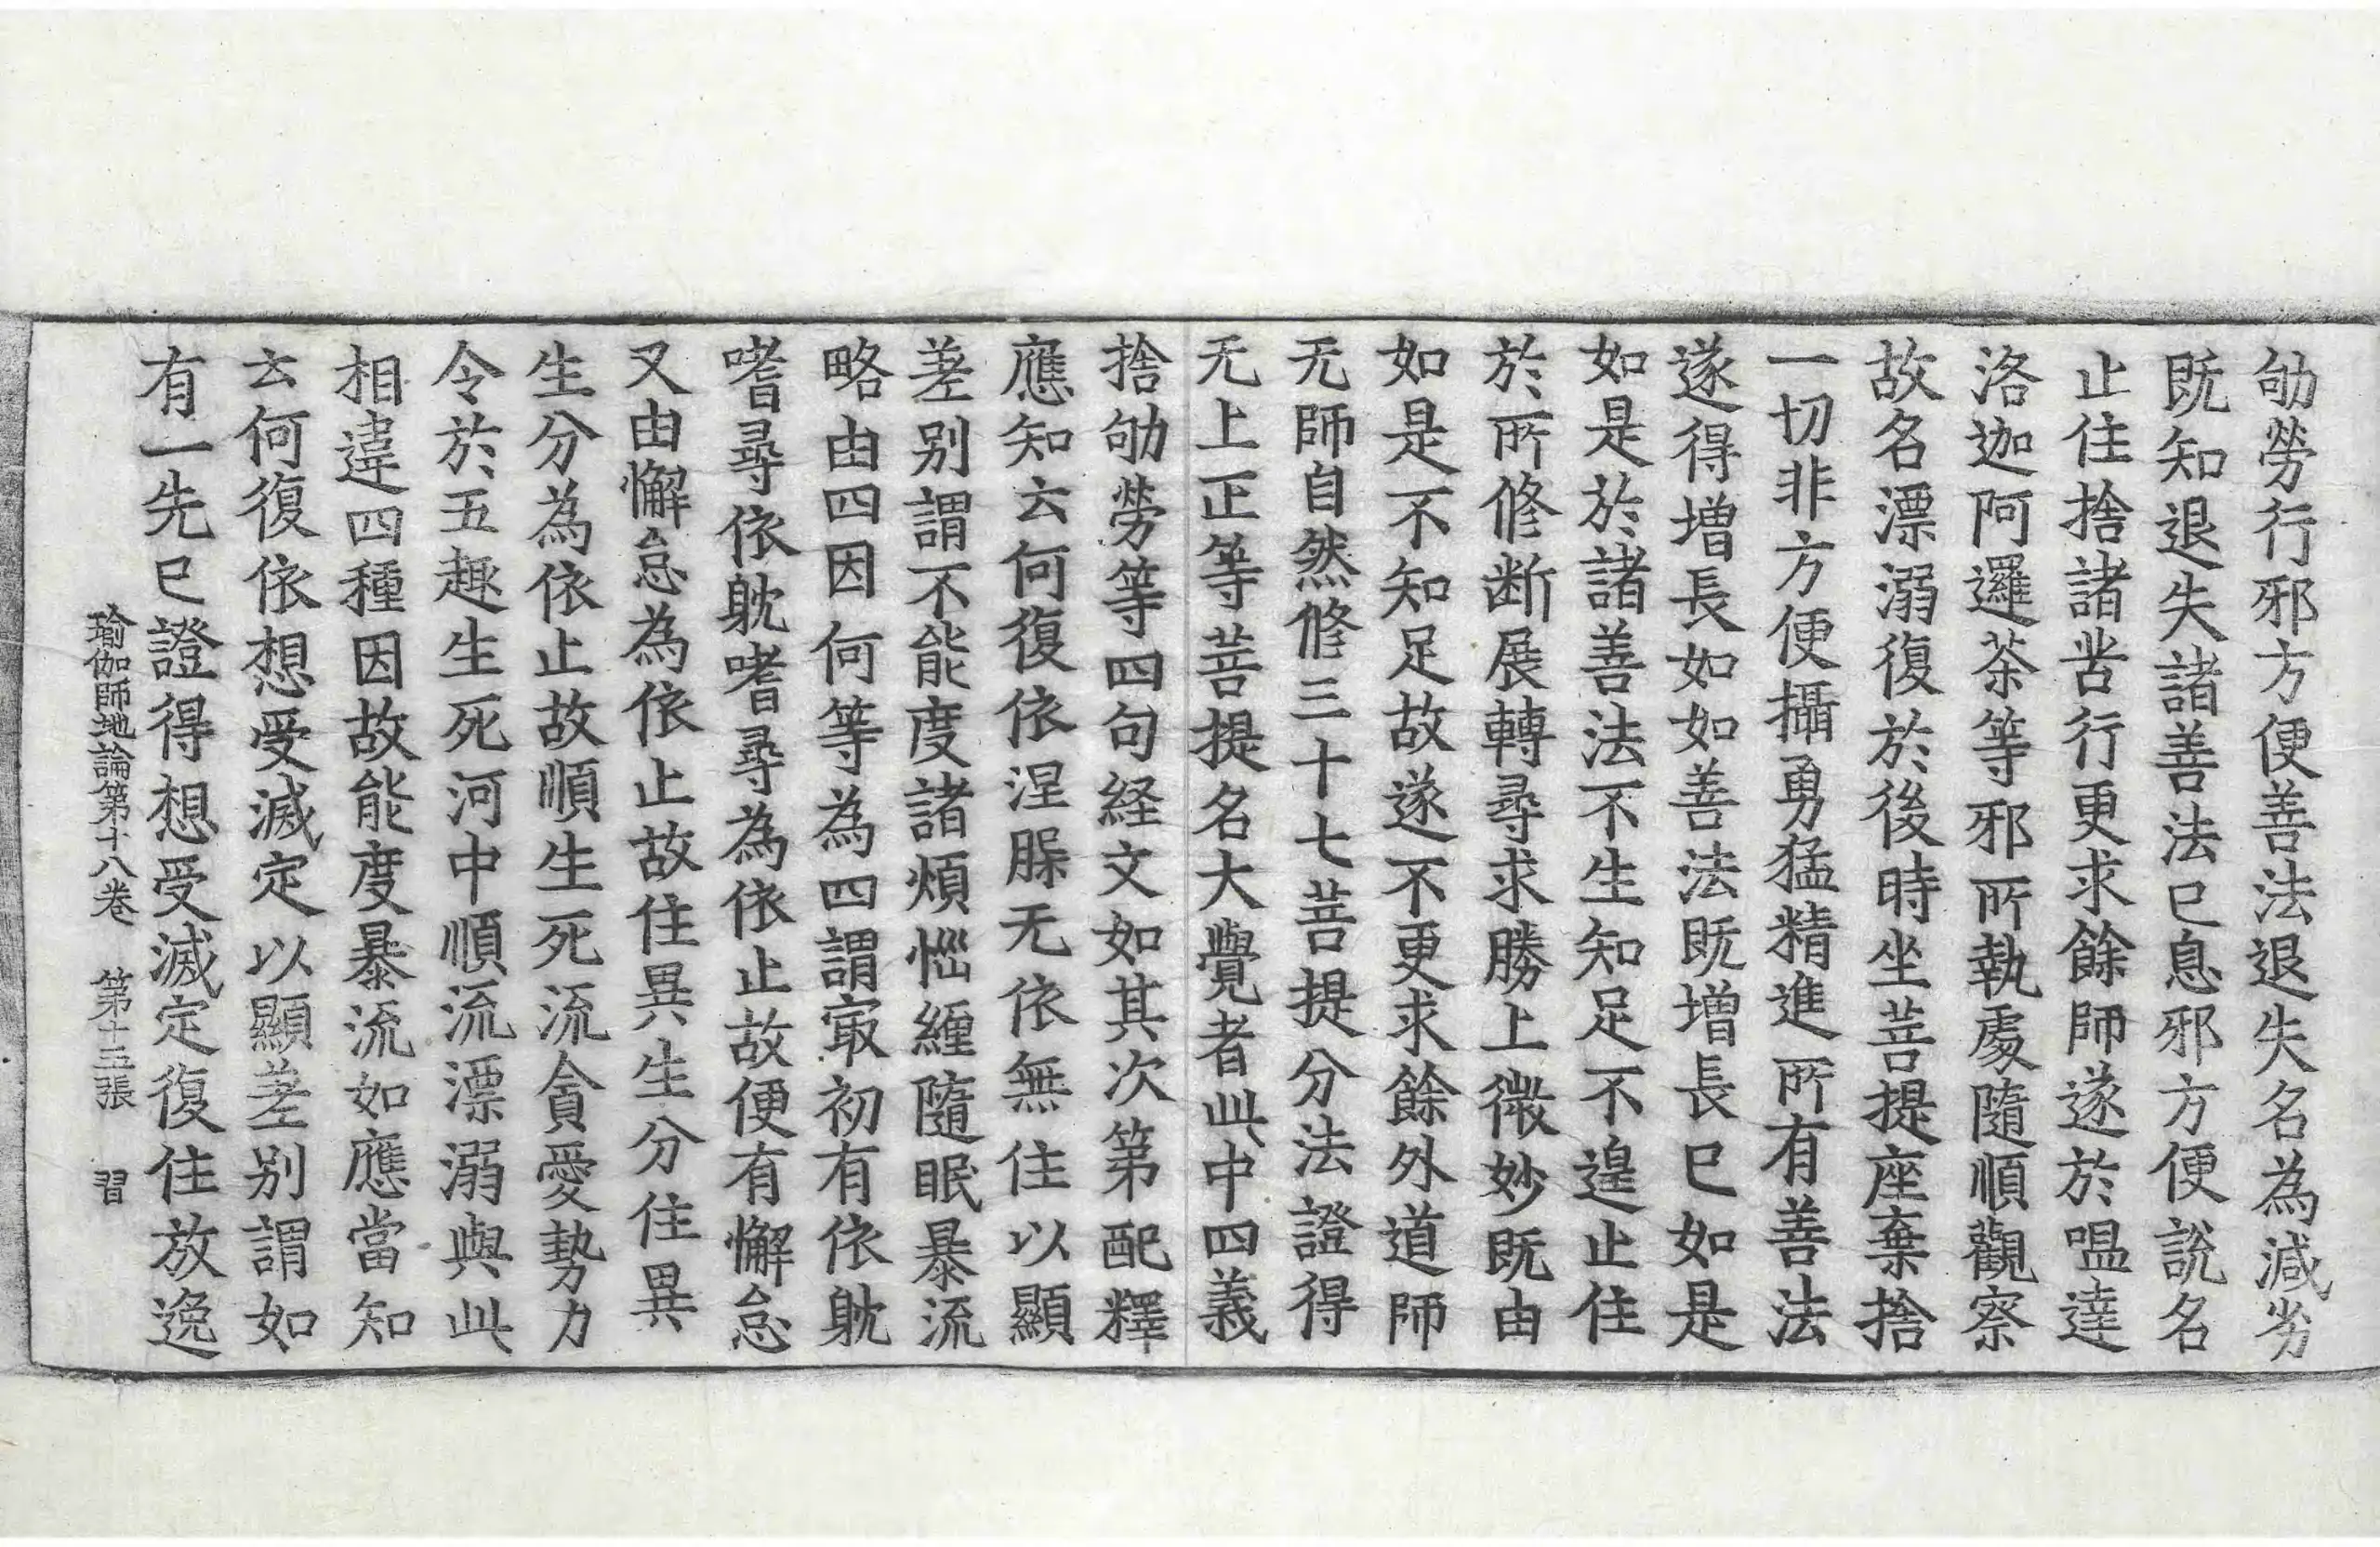 劬勞行邪方便善法退失名為減劣
既知退失諸善法已息邪方便說名
止住捨諸苦行更求餘師遂於嗢達
洛迦阿邏荼等邪所執處隨順觀察
故名漂溺復於後時坐菩提座棄捨
一切非方便攝勇猛精進所有善法
遂得增長如如善法既增長已如是
如是於諸善法不生知足不遑止住
於所修断展轉尋求勝上微妙既由
如是不知足故遂不更求餘外道師
无師自然修三十七菩提分法證得
无上正等菩提名大覺者此中四義
捨劬勞等四句経文如其次第配釋
應知云何復依涅槃无依無住以顯
差別謂不能度諸煩惱纏隨眠暴流
略由四因何等為四謂㝡初有依躭
嗜尋依躭嗜尋為依止故便有懈怠
又由懈怠為依止故住異生分住異
生分為依止故順生死流貪愛勢力
令於五趣生死河中順流漂溺與此
相違四種因故能度暴流如應當知
云何復依想受滅定以顯差別謂如
有一先已證得想受滅定復住放逸
瑜伽師地論第十八卷　第十五張　習